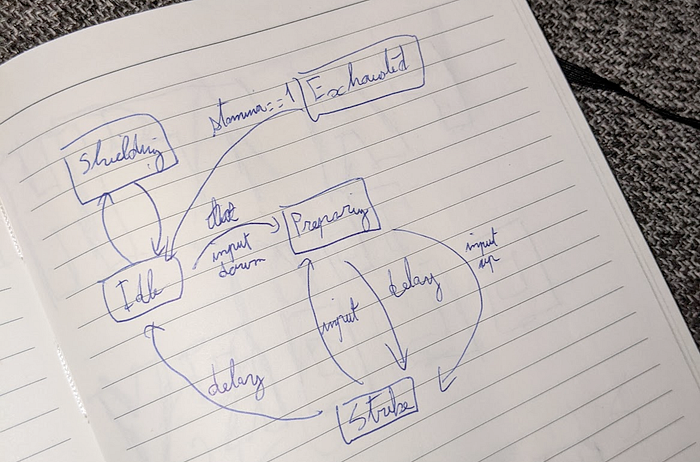 Exhausted
stamina==1
Shielding
Preparing
input
down
Idle
input
up
delay
input
delay
Strike